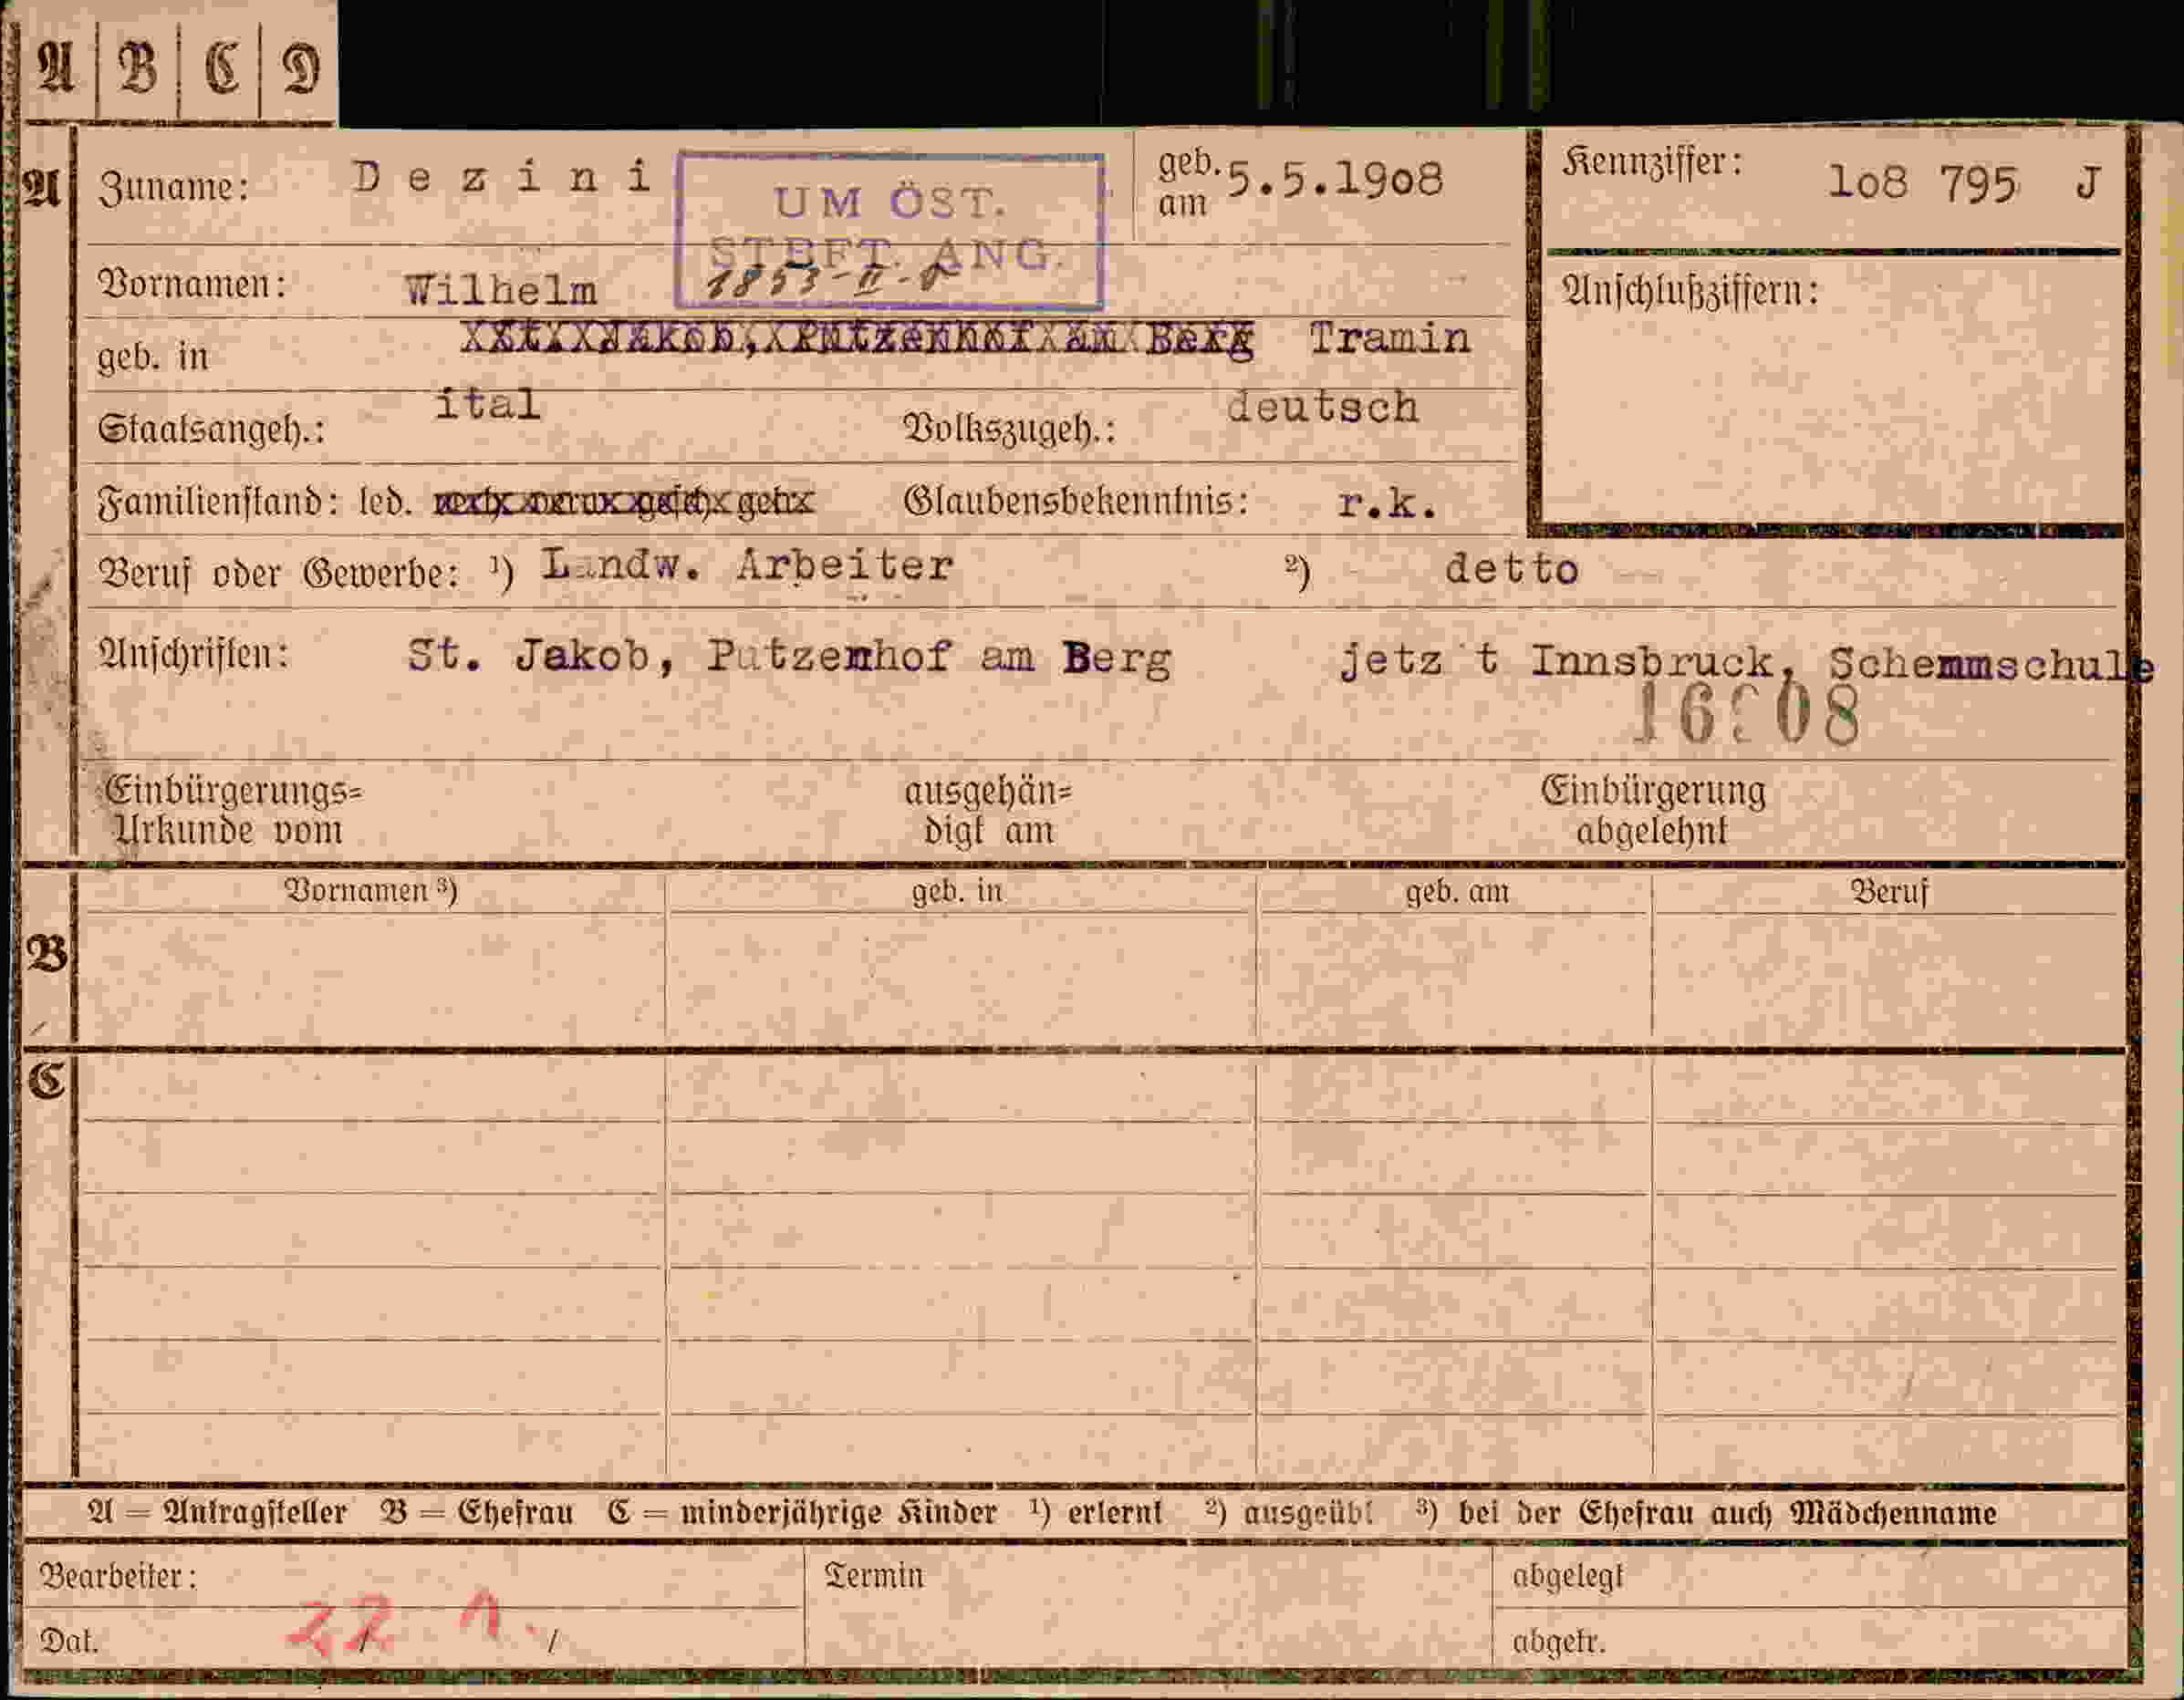 A B C D
A Zuname: Dezini geb. am 5.5.1908 Kennziffer: 108 795 J
UM ÖST.
STBFT. ANG.
Vornamen: Wilhelm 1853-II- Anschlußziffern:
geb. in St. Jakob, Putzenhof am Berg Tramin
Staatsangeh.: ital Volkszugeh.: deutsch
Familienstand: led. verh. verw. gesch. getr. Glaubensbekenntnis: r.k.
Beruf oder Gewerbe: ¹) Landw. Arbeiter ²) detto
Anschriften: St. Jakob, Putzenhof am Berg jetz t Innsbruck, Schemmschule
Einbürgerungs= ausgehän= Einbürgerung
Urkunde vom digt am abgelehnt
Vornamen ³) geb. in geb. am Beruf
B
C
A = Antragsteller B = Ehefrau C = minderjährige Kinder ¹) erlernt ²) ausgeübt ³) bei der Ehefrau auch Mädchenname
Bearbeiter: Termin abgelegt
Dat. 22 1. abgetr.